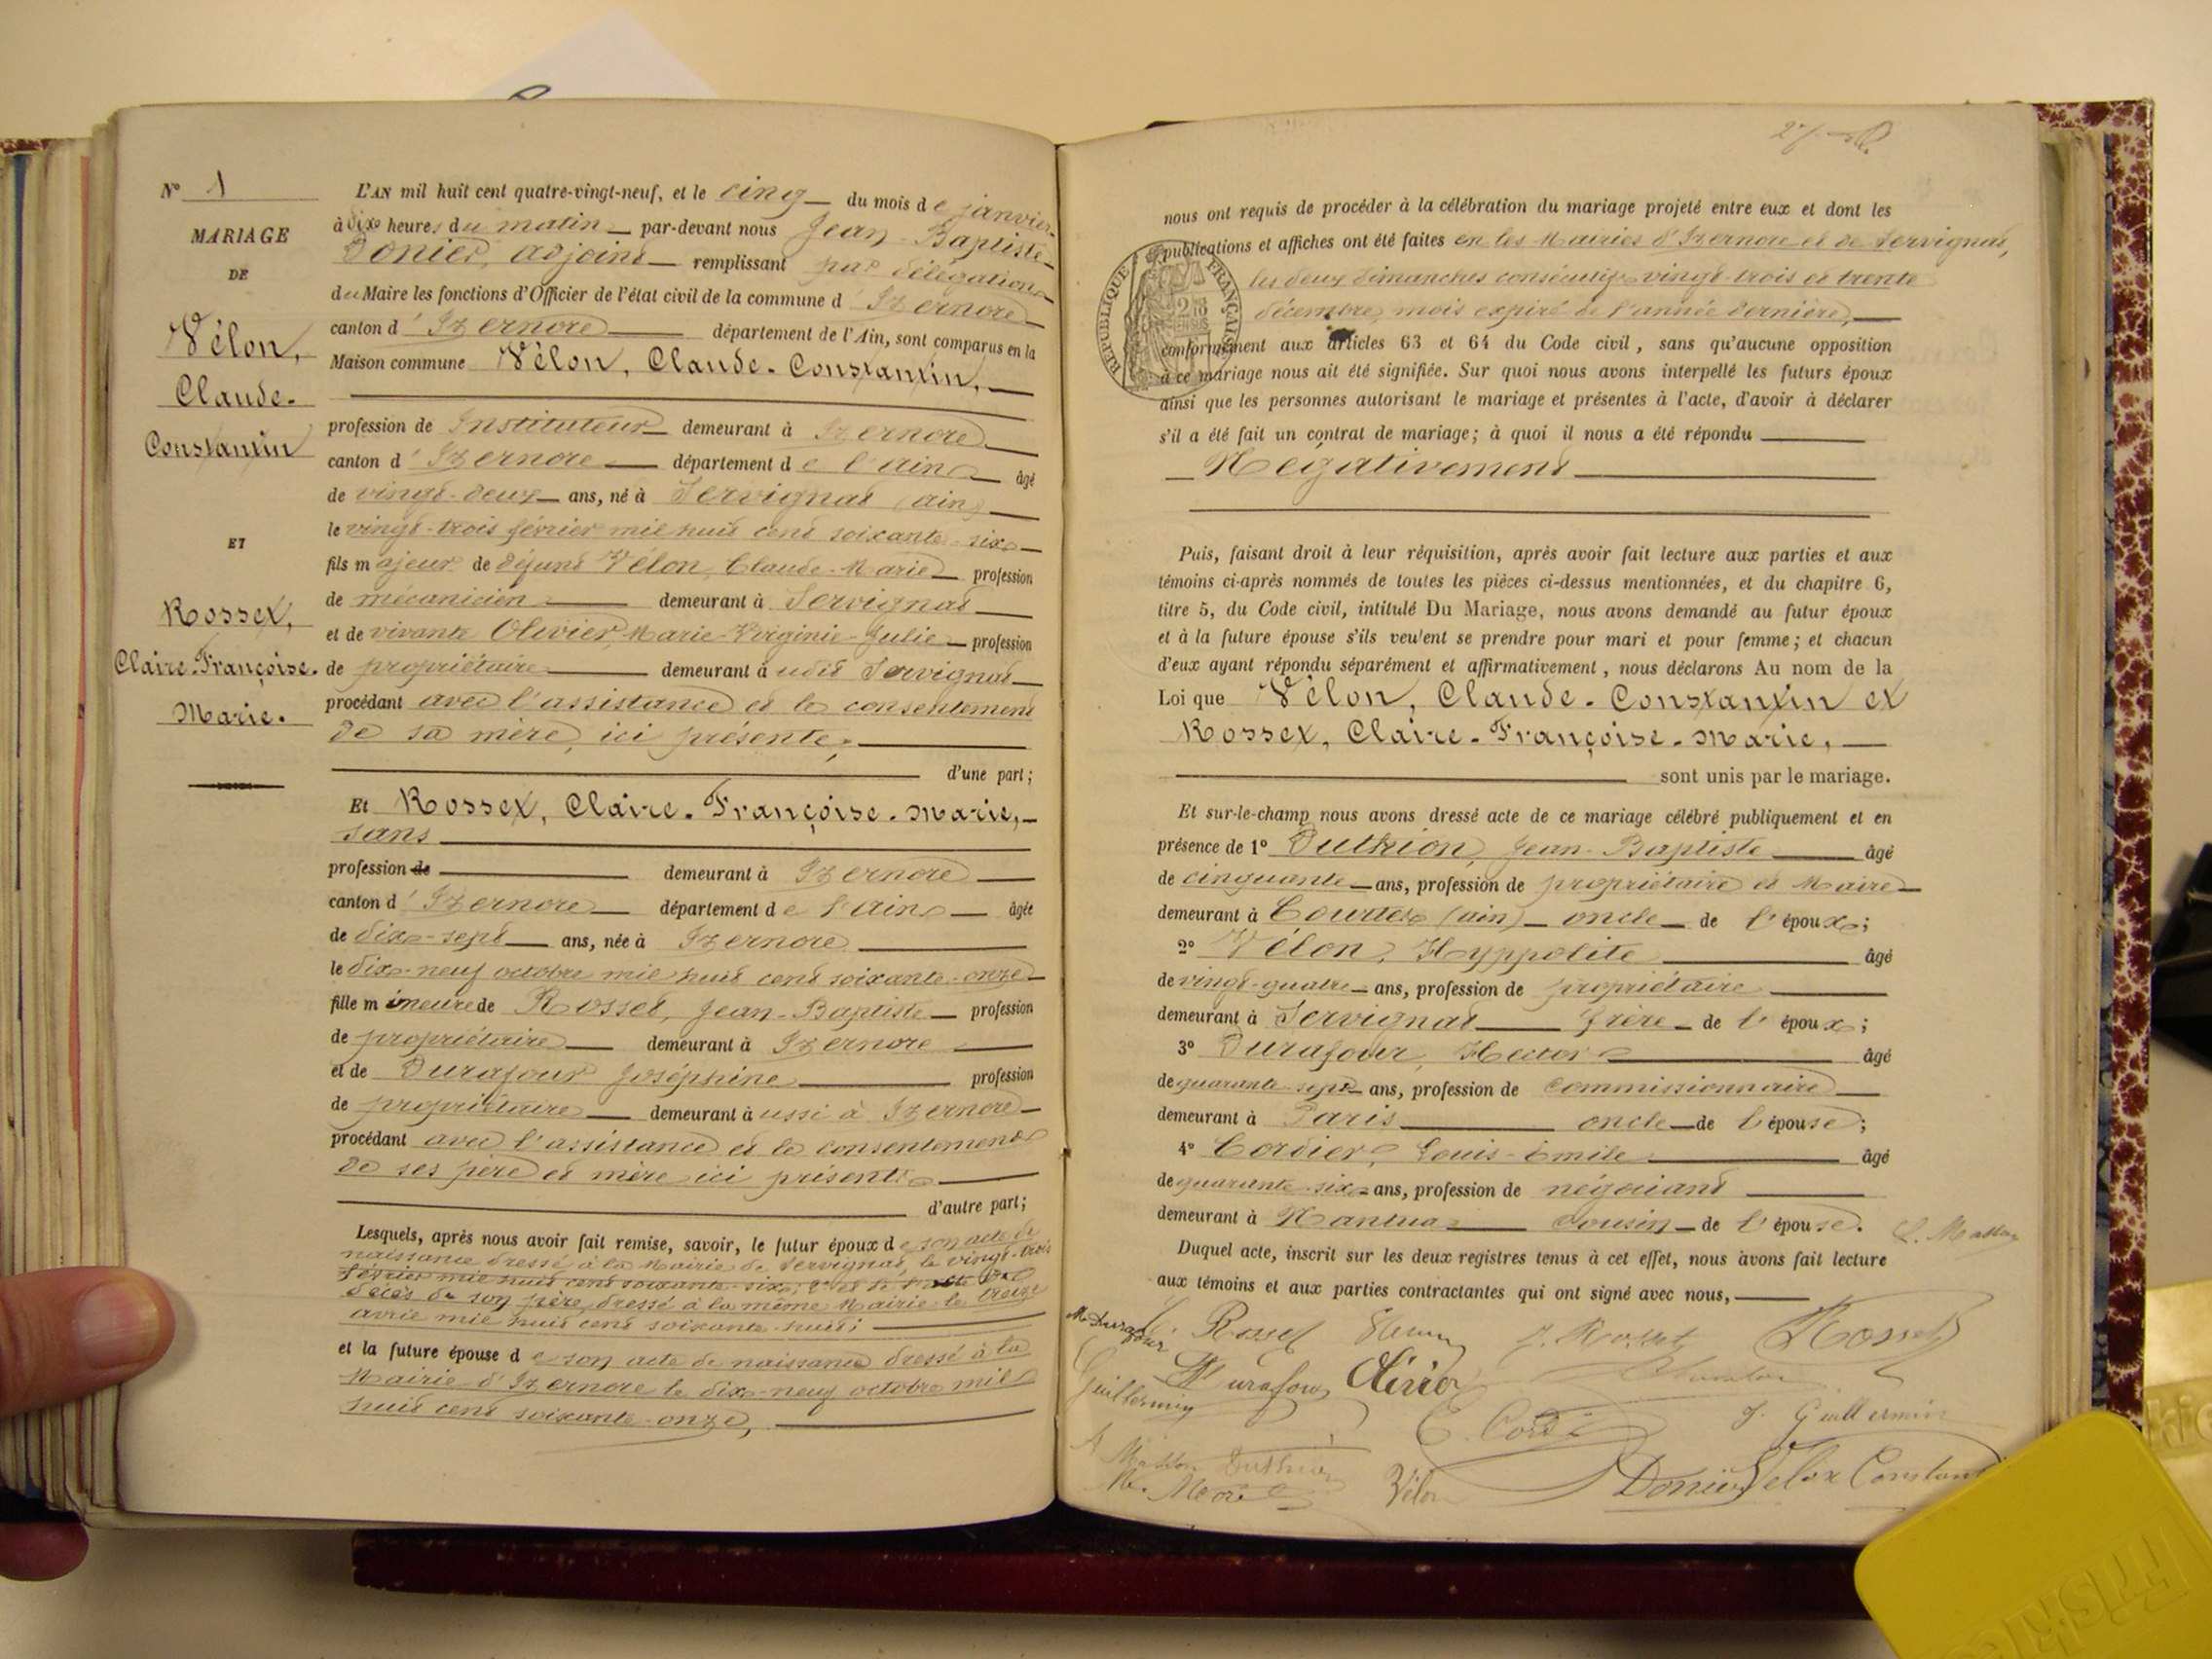 N° 1
MARIAGE
DE
Vélon,
Claude-
Constantin
ET
Rosset,
Claire-Françoise-
Marie.
L'AN mil huit cent quatre-vingt-neuf, et le cinq du mois de janvier
à dix heures du matin par-devant nous Jean-Baptiste
Donier, adjoint remplissant par délégation
du Maire les fonctions d'Officier de l'état civil de la commune d'Izernore
canton d'Izernore département de l'Ain, sont comparus en la
Maison commune Vélon, Claude-Constantin,
profession de Instituteur demeurant à Izernore
canton d'Izernore département de l'ain âgé
de vingt-deux ans, né à Servignat (ain)
le vingt-trois février mil huit cent soixante-six
fils majeur de défunt Vélon, Claude-Marie profession
de mécanicien demeurant à Servignat
et de vivante Olivier, Marie-Virginie-Julie profession
de propriétaire demeurant à udit Servignat
procédant avec l'assistance et le consentement
de sa mère, ici présente;
d'une part;
Et Rosset, Claire-Françoise-Marie,
sans
profession de demeurant à Izernore
canton d'Izernore département de l'ain âgée
de dix-sept ans, née à Izernore
le dix-neuf octobre mil huit cent soixante-onze
fille mineure de Rosset, Jean-Baptiste profession
de propriétaire demeurant à Izernore
et de Durafour Joséphine profession
de propriétaire demeurant à ussi à Izernore
procédant avec l'assistance et le consentement
de ses père et mère ici présents
d'autre part;
Lesquels, après nous avoir fait remise, savoir, le futur époux de son acte de
naissance dressé à la Mairie de Servignat, le vingt-trois
février mil huit cent soixante-six; de l'acte de
décès de son père, dressé à la même Mairie le treize
avril mil huit cent soixante-huit;
et la future épouse de son acte de naissance dressé à la
Mairie d'Izernore le dix-neuf octobre mil
huit cent soixante-onze,
nous ont requis de procéder à la célébration du mariage projeté entre eux et dont les
publications et affiches ont été faites en les Mairies d'Izernore et de Servignat,
les deux dimanches consécutifs vingt-trois et trente
décembre, mois expiré de l'année dernière,
RÉPUBLIQUE FRANÇAISE
conformément aux articles 63 et 64 du Code civil, sans qu'aucune opposition
à ce mariage nous ait été signifiée. Sur quoi nous avons interpellé les futurs époux
ainsi que les personnes autorisant le mariage et présentes à l'acte, d'avoir à déclarer
s'il a été fait un contrat de mariage; à quoi il nous a été répondu
Négativement
Puis, faisant droit à leur réquisition, après avoir fait lecture aux parties et aux
témoins ci-après nommés de toutes les pièces ci-dessus mentionnées, et du chapitre 6,
titre 5, du Code civil, intitulé Du Mariage, nous avons demandé au futur époux
et à la future épouse s'ils veulent se prendre pour mari et pour femme; et chacun
d'eux ayant répondu séparément et affirmativement, nous déclarons Au nom de la
Loi que Vélon, Claude-Constantin et
Rosset, Claire-Françoise-Marie,
sont unis par le mariage.
Et sur-le-champ nous avons dressé acte de ce mariage célébré publiquement et en
présence de 1° Duthion, Jean-Baptiste âgé
de cinquante ans, profession de propriétaire et Maire
demeurant à Courtes (ain) oncle de l'époux;
2° Vélon, Hyppolite âgé
de vingt-quatre ans, profession de propriétaire
demeurant à Servignat frère de l'époux;
3° Durafour, Hector âgé
de quarante-sept ans, profession de commissionnaire
demeurant à Paris oncle de l'épouse;
4° Cordier, Louis-Emile âgé
de quarante-six ans, profession de négociant
demeurant à Nantua cousin de l'épouse.
Duquel acte, inscrit sur les deux registres tenus à cet effet, nous avons fait lecture
aux témoins et aux parties contractantes qui ont signé avec nous,
M Durafour C. Rosset J. Rosset Rosset
Guillermin H Durafour
J. Guillermin
A Masson Duthion
Vélon Donier Vélon Constant
Friskies